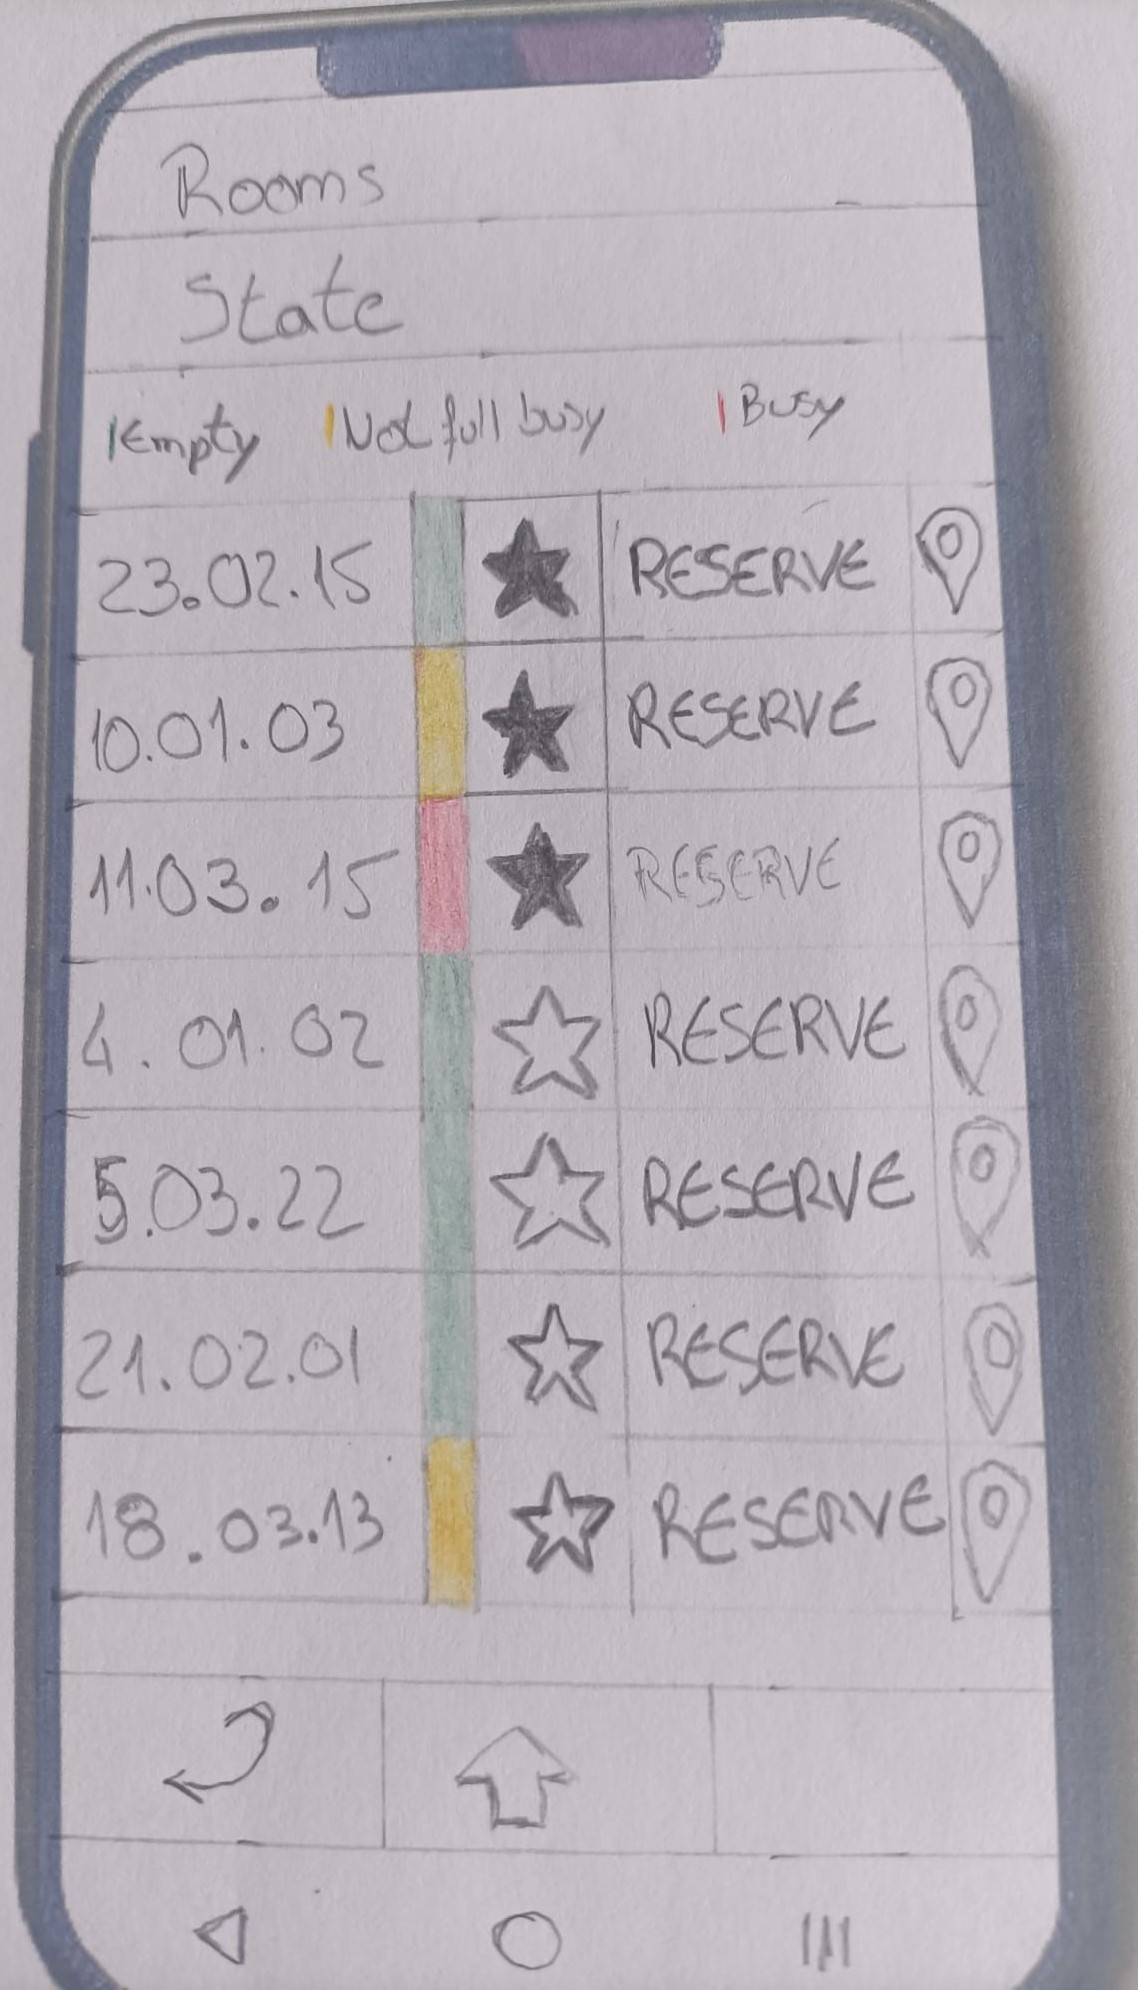 Rooms
State
Empty Not full busy Busy
23.02.15 RESERVE
10.01.03 RESERVE
11.03.15 RESERVE
4.01.02 RESERVE
5.03.22 RESERVE
21.02.01 RESERVE
18.03.13 RESERVE